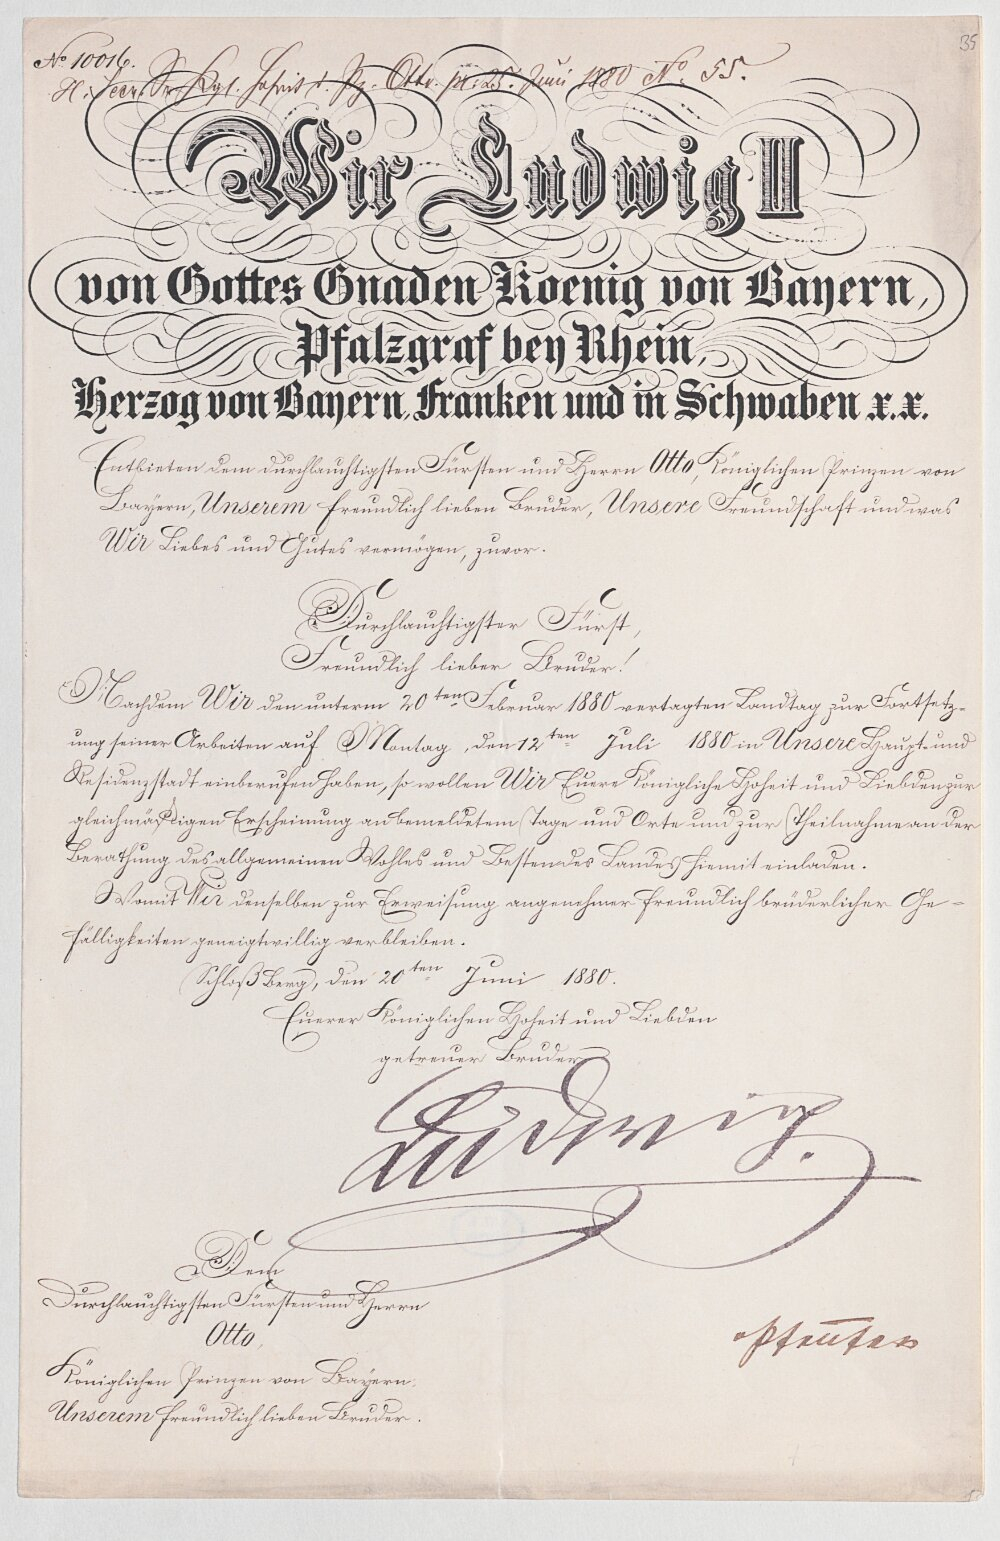 35
No 10016.
H. Secr. Sr. Kgl. Hoheit d. Pz. Otto. pr. 25. Juni 1880 No. 55.
Wir Ludwig II
von Gottes Gnaden Koenig von Bayern,
Pfalzgraf bey Rhein,
Herzog von Bayern, Franken und in Schwaben x.x.
Entbieten dem durchlauchtigsten Fürsten und Herrn Otto, Königlichen Prinzen von
Bayern, Unserem freundlich lieben Bruder, Unsere Freundschaft und was
Wir Liebes und Gutes vermögen, zuvor.
Durchlauchtigster Fürst,
Freundlich lieber Bruder!
Nachdem Wir den unterm 20ten Februar 1880 vertagten Landtag zur Fortsetz-
ung seiner Arbeiten auf Montag, den 12ten Juli 1880 in Unsere Haupt- und
Residenzstadt einberufen haben, so wollen Wir Euere Königliche Hoheit und Liebden zur
gleichmäßigen Erscheinung an bemeldetem Tage und Orte und zur Theilnahme an der
Berathung des allgemeinen Wohles und Besten des Landes hiemit einladen.
Womit Wir denselben zur Erweisung angenehmer freundlich brüderlicher Ge-
fälligkeiten geneigtwillig verbleiben.
Schloß Berg, den 20ten Juni 1880.
Euerer Königlichen Hoheit und Liebden
getreuer Bruder
Ludwig.
Dem
Durchlauchtigsten Fürsten und Herrn
Otto,
Königlichen Prinzen von Bayern,
Unserem freundlich lieben Bruder.
vPfeufer